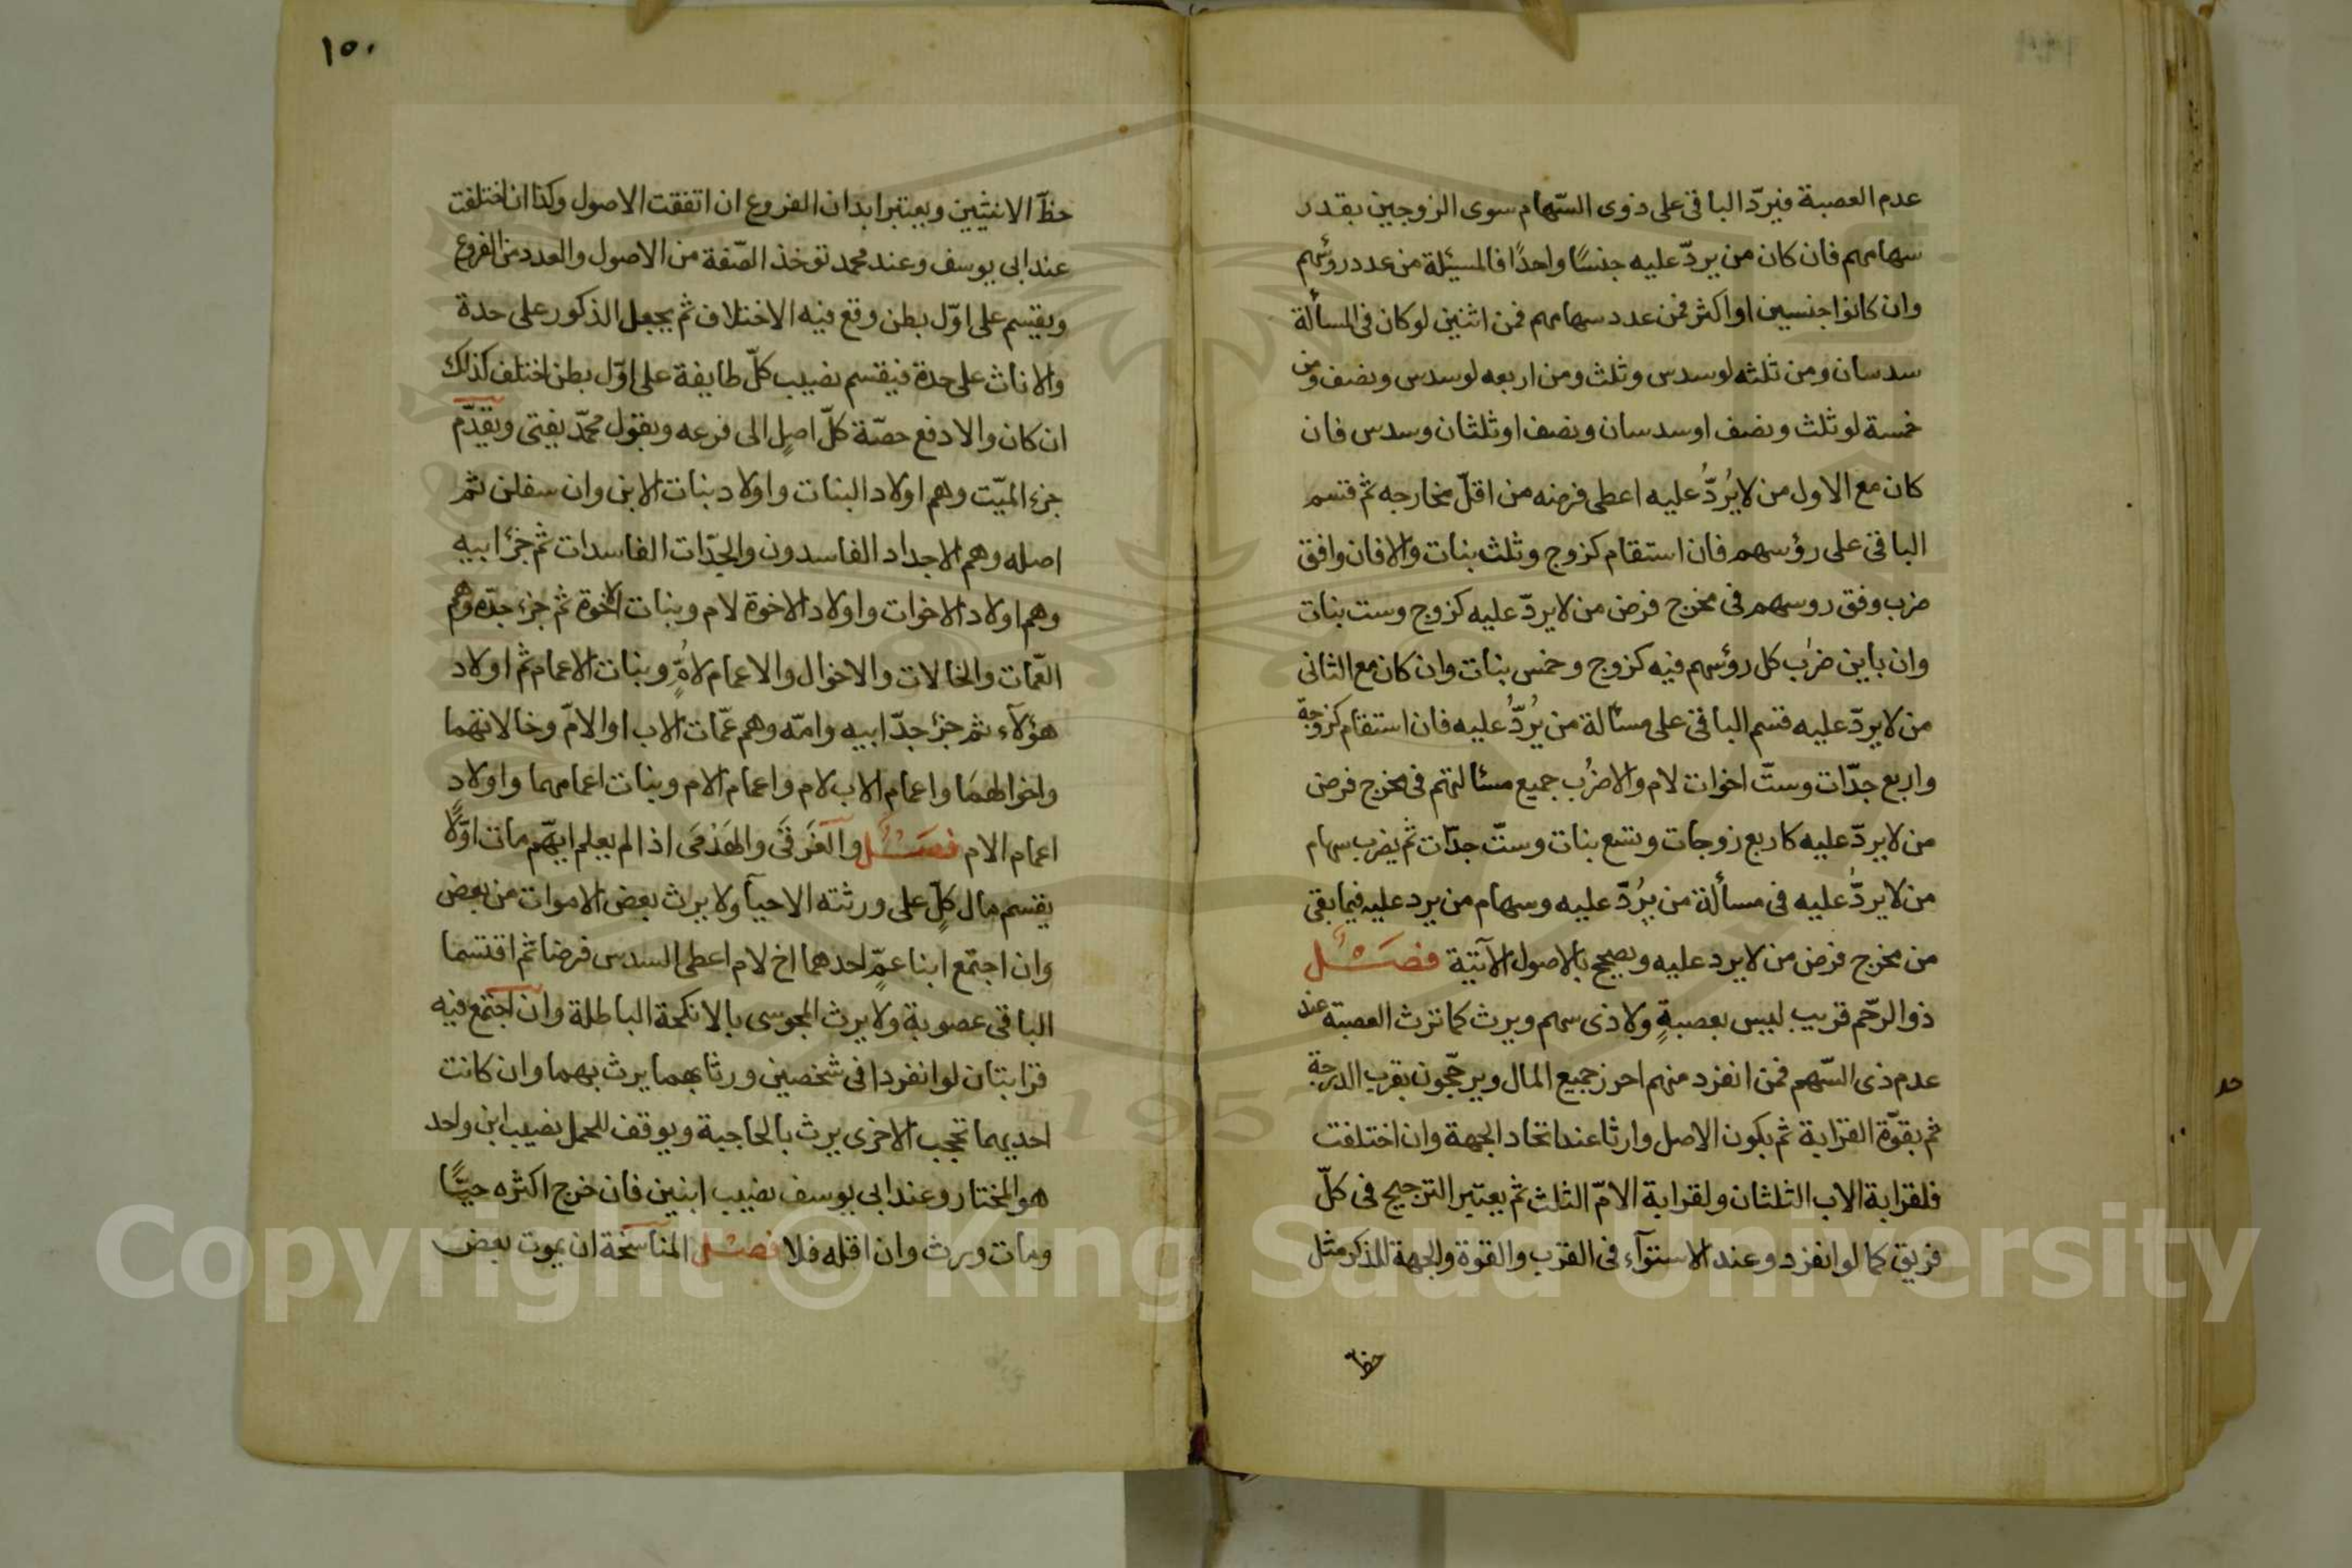 عدم العصبة فيردّ الباقى على ذوى السّهام سوى الزوجين بقدر
سهامهم فان كان من يردّ عليه جنسًا واحدًا فالمسئلة من عدد رؤسهم
وان كانوا جنسين او اكثر فمن عدد سهامهم فمن اثنين لو كان فى المسألة
سدسان ومن ثلثه لو سدس وثلث ومن اربعه لو سدس ونصف ومن
خمسة لو ثلث ونصف او سدسان ونصف او ثلثان وسدس فان
كان مع الاول من لا يُردُّ عليه اعطى فرضه من اقلّ مخارجه ثم قسم
الباقى على رؤسهم فان استقام كزوج وثلث بنات والا فان وافق
ضرب وفق روسهم فى مخرج فرض من لا يردّ عليه كزوج وست بنات
وان باين ضرب كل رؤسهم فيه كزوج وخمس بنات وان كان مع الثانى
من لا يردّ عليه قسم الباقى على مسألة من يُردُّ عليه فان استقام كزوجة
واربع جدّات وستّ اخوات لام والا ضُرب جميع مسالتهم فى مخرج فرض
من لا يردّ عليه كاربع زوجات وتسع بنات وستّ جدّات ثم يضرب سهام
من لا يردُّ عليه فى مسألة من يُردّ عليه وسهام من يرد عليه فيما بقى
من مخرج فرض من لا يرد عليه ويصحح بالاصول الآتية فصل
ذو الرّحم قريب ليس بعصبةٍ ولا ذى سهم ويرث كما ترث العصبة عند
عدم ذى السّهم فمن انفرد منهم احرز جميع المال ويرجّحون بقرب الدرجة
ثم بقوّة القرابة ثم بكون الاصل وارثا عند اتحاد الجهة وان اختلفت
فلقرابة الاب الثلثان ولقرابة الامّ الثلث ثم يعتبر الترجيح فى كلّ
فريق كما لو انفرد وعند الاستوآء فى القرب والقوة والجهة للذكر مثل
حظّ
١٥٠
حظّ الانثيين ويعتبر ابدان الفروع ان اتفقت الاصول وكذا ان اختلفت
عند ابى يوسف وعند محمد تؤخذ الصّفة من الاصول والعدد من الفروع
ويقسم على اوّل بطن وقع فيه الاختلاف ثم يجعل الذكور على حدة
والاناث على حدة فيقسم نصيب كلّ طايفة على اوّل بطن اختلف كذلك
ان كان والا دفع حصّة كلّ اصلٍ الى فرعه وبقول محمّد يفتى ويقدّم
جزء الميّت وهم اولاد البنات واولاد بنات الابن وان سفلن ثم
اصله وهم الاجداد الفاسدون والجدّات الفاسدات ثم جزء ابيه
وهم اولاد الاخوات واولاد الاخوة لام وبنات الاخوة ثم جزء جدّه وهم
العّمات والخالات والاخوال والاعمام لامٍّ وبنات الاعمام ثم اولاد
هؤلآء ثم جزء جدّ ابيه وامّه وهم عمّات الاب او الامّ وخالاتهما
واخوالهما واعمام الاب لام واعمام الام وبنات اعمامهما واولاد
اعمام الام فصل والغرقى والهدمى اذا لم يعلم ايهّم مات اوّلًا
يقسم مال كلٍّ على ورثته الاحيآ ولا يرث بعض الاموات من بعض
وان اجتمع ابنا عمٍّ احدهما اخ لام اعطى السدس فرضا ثم اقتسما
الباقى عصوبة ولا يرث المجوسى بالانكحة الباطلة وان اجتمع فيه
قرابتان لو انفردا فى شخصين ورثا بهما يرث بهما وان كانت
احديهما تحجب الاخرى يرث بالحاجبة ويوقف للحمل نصيب ابن واحد
هو المختار وعند ابى يوسف نصيب ابنين فان خرج اكثره حيًّا
ومات ورث وان اقله فلا فصل المناسخة ان يموت بعض
حد
Copyright © King Saud University
1957